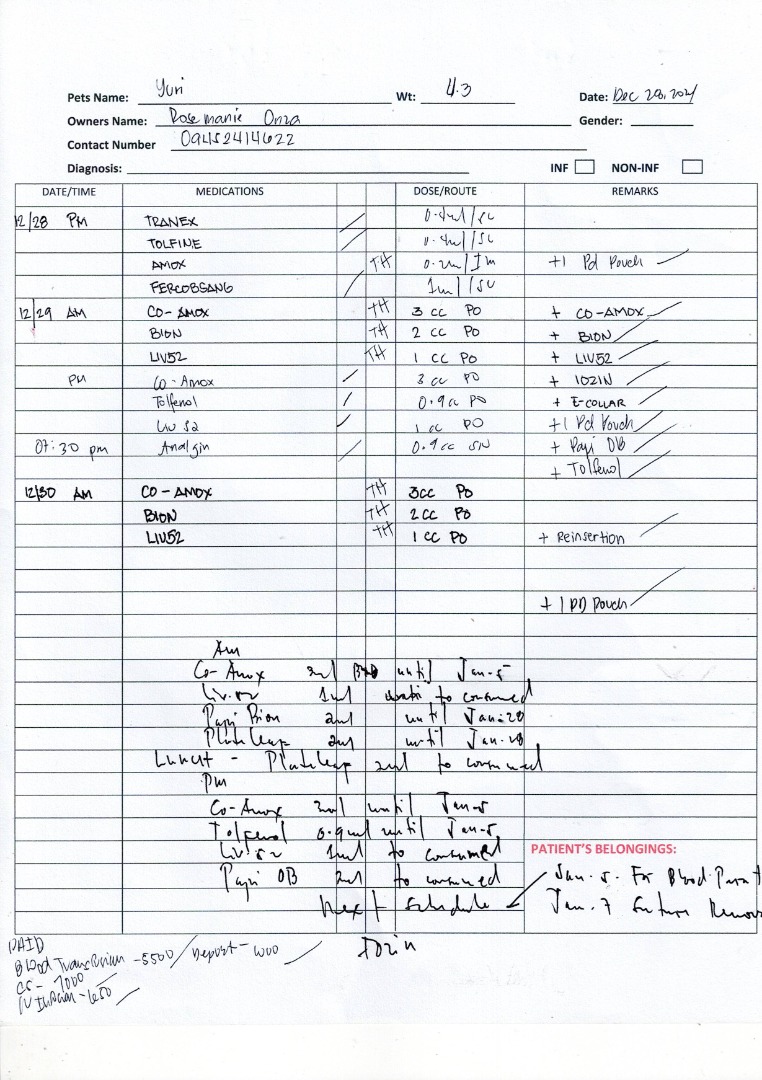 Pets Name: Yuri Wt: 4.3 Date: Dec 28, 2024
Owners Name: Rosemarie Onza Gender:
Contact Number 09452414622
Diagnosis: INF NON-INF
DATE/TIME MEDICATIONS DOSE/ROUTE REMARKS
12/28 PM TRANEX
TOLFINE
AMOX TH +1 Pd Pouch
FERCOBSANG
12/29 AM CO-AMOX TH 3 cc PO + CO-AMOX
BION TH 2 cc PO + BION
LIV52 TH 1 cc PO + LIV52
PM Co-Amox 3 cc PO + IOZIN
Tolfenol 0.9 cc PO + E-COLLAR
Liv 52 1 cc PO +1 Pd Pouch
07:30 pm Analgin 0.9 cc + Papi OB
+ Tolfenol
12/30 AM CO-AMOX TH 3cc PO
BION TH 2cc PO
LIV52 TH 1 cc PO + Reinsertion
+ 1 PD Pouch
Am
Co-Amox until Jan-5
Liv-52 1ml to consumed
Papi Bion 2ml until Jan-28
Plateleap 2ml until Jan-28
Lunch - Plateleap 2ml to consumed
Pm
Co-Amox until Jan-5
Tolfenol 0.9ml until Jan-5
Liv-52 1ml to consumed
PATIENT'S BELONGINGS:
Papi OB 2ml to consumed Jan-5. For Blood
Next Schedule Jan. 7 Suture
Iozin
PAID
Blood Transfusion -5500 / Deposit-
CS - 7000